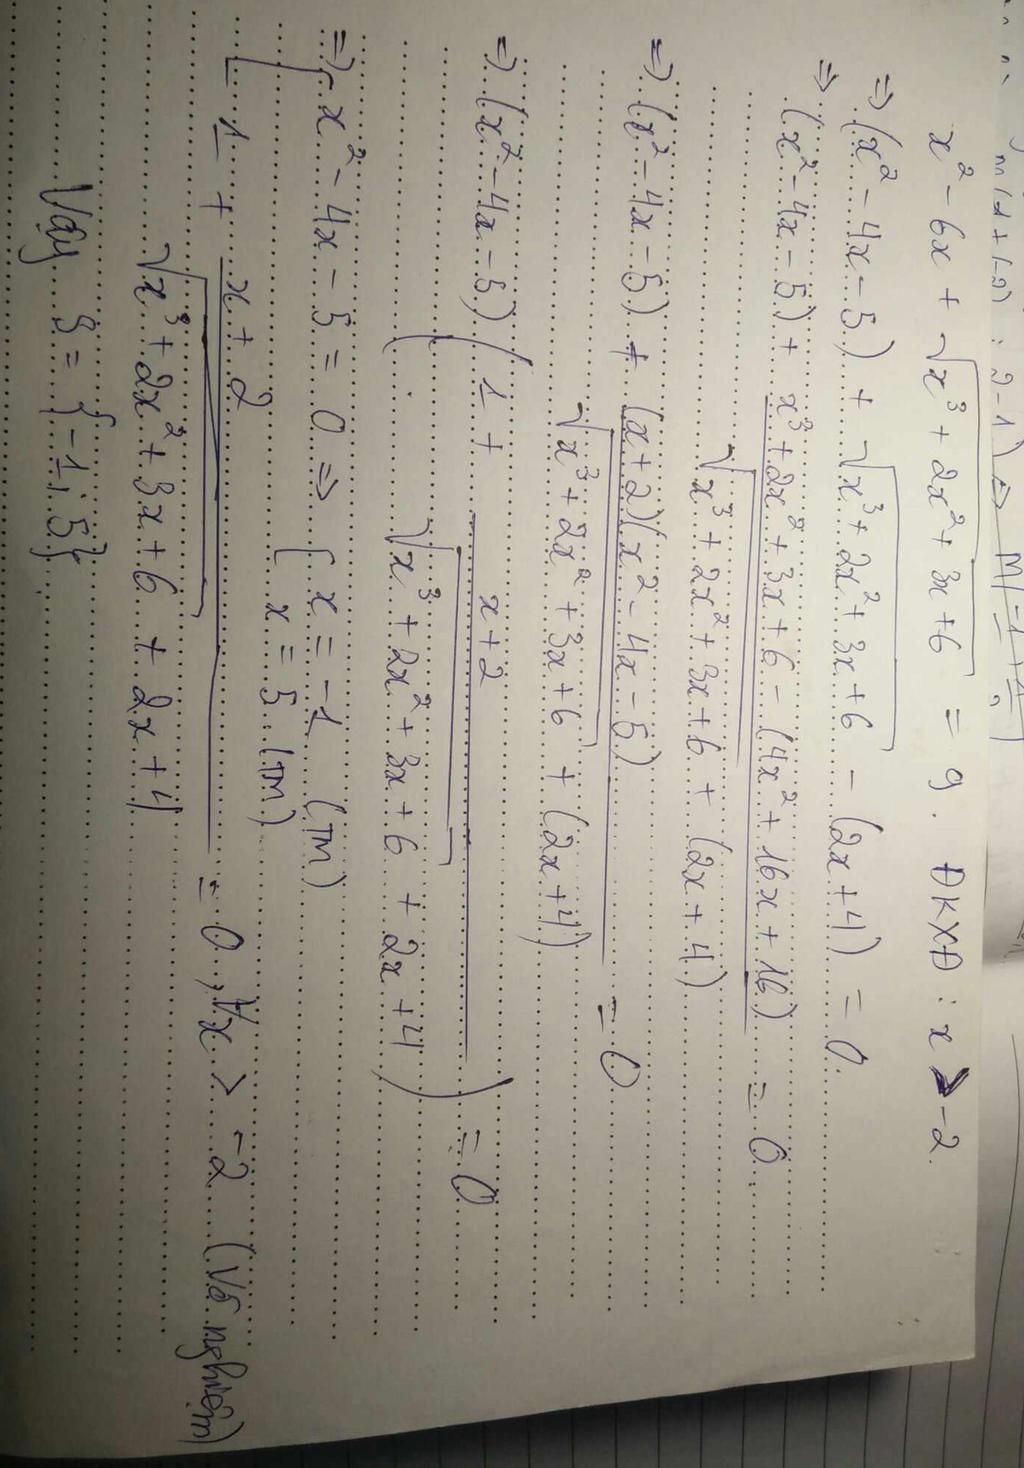 x² - 6x + √(x³ + 2x² + 3x + 6) = 9. ĐKXĐ: x ≥ -2.
=> (x² - 4x - 5) + √(x³ + 2x² + 3x + 6) - (2x + 4) = 0.
=> (x² - 4x - 5) + (x³ + 2x² + 3x + 6 - (4x² + 16x + 16))/(√(x³ + 2x² + 3x + 6) + (2x + 4)) = 0
=> (x² - 4x - 5) + ((x + 2)(x² - 4x - 5))/(√(x³ + 2x² + 3x + 6) + (2x + 4)) = 0
=> (x² - 4x - 5)(1 + (x + 2)/(√(x³ + 2x² + 3x + 6) + 2x + 4)) = 0
=> [ x² - 4x - 5 = 0 => { x = -1 (TM)
x = 5 (TM)
1 + (x + 2)/(√(x³ + 2x² + 3x + 6) + 2x + 4) = 0, ∀x > -2 (Vô nghiệm)
Vậy S = {-1; 5}